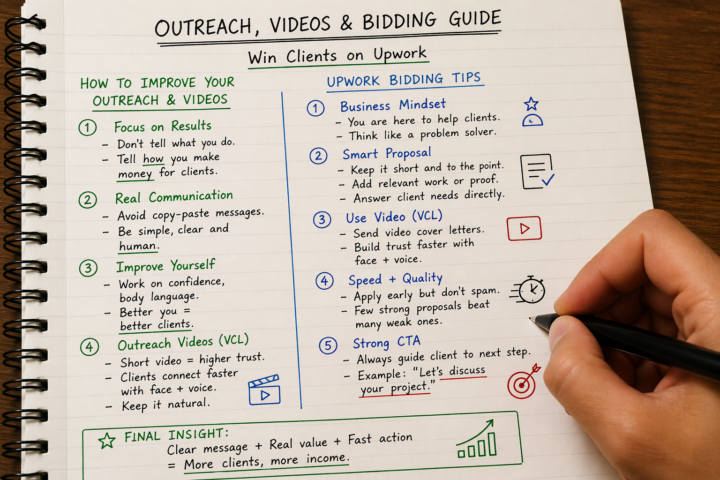 OUTREACH, VIDEOS & BIDDING GUIDE
Win Clients on Upwork
HOW TO IMPROVE YOUR
OUTREACH & VIDEOS
1 Focus on Results
- Don't tell what you do.
- Tell how you make
money for clients.
2 Real Communication
- Avoid copy-paste messages.
- Be simple, clear and
human.
3 Improve Yourself
- Work on confidence,
body language.
- Better you =
better clients.
4 Outreach Videos (VCL)
- Short video = higher trust.
- Clients connect faster
with face + voice.
- Keep it natural.
UPWORK BIDDING TIPS
1 Business Mindset
- You are here to help clients.
- Think like a problem solver.
2 Smart Proposal
- Keep it short and to the point.
- Add relevant work or proof.
- Answer client needs directly.
3 Use Video (VCL)
- Send video cover letters.
- Build trust faster with
face + voice.
4 Speed + Quality
- Apply early but don't spam.
- Few strong proposals beat
many weak ones.
5 Strong CTA
- Always guide client to next step.
- Example: "Let's discuss
your project."
FINAL INSIGHT:
Clear message + Real value + Fast action
= More clients, more income.